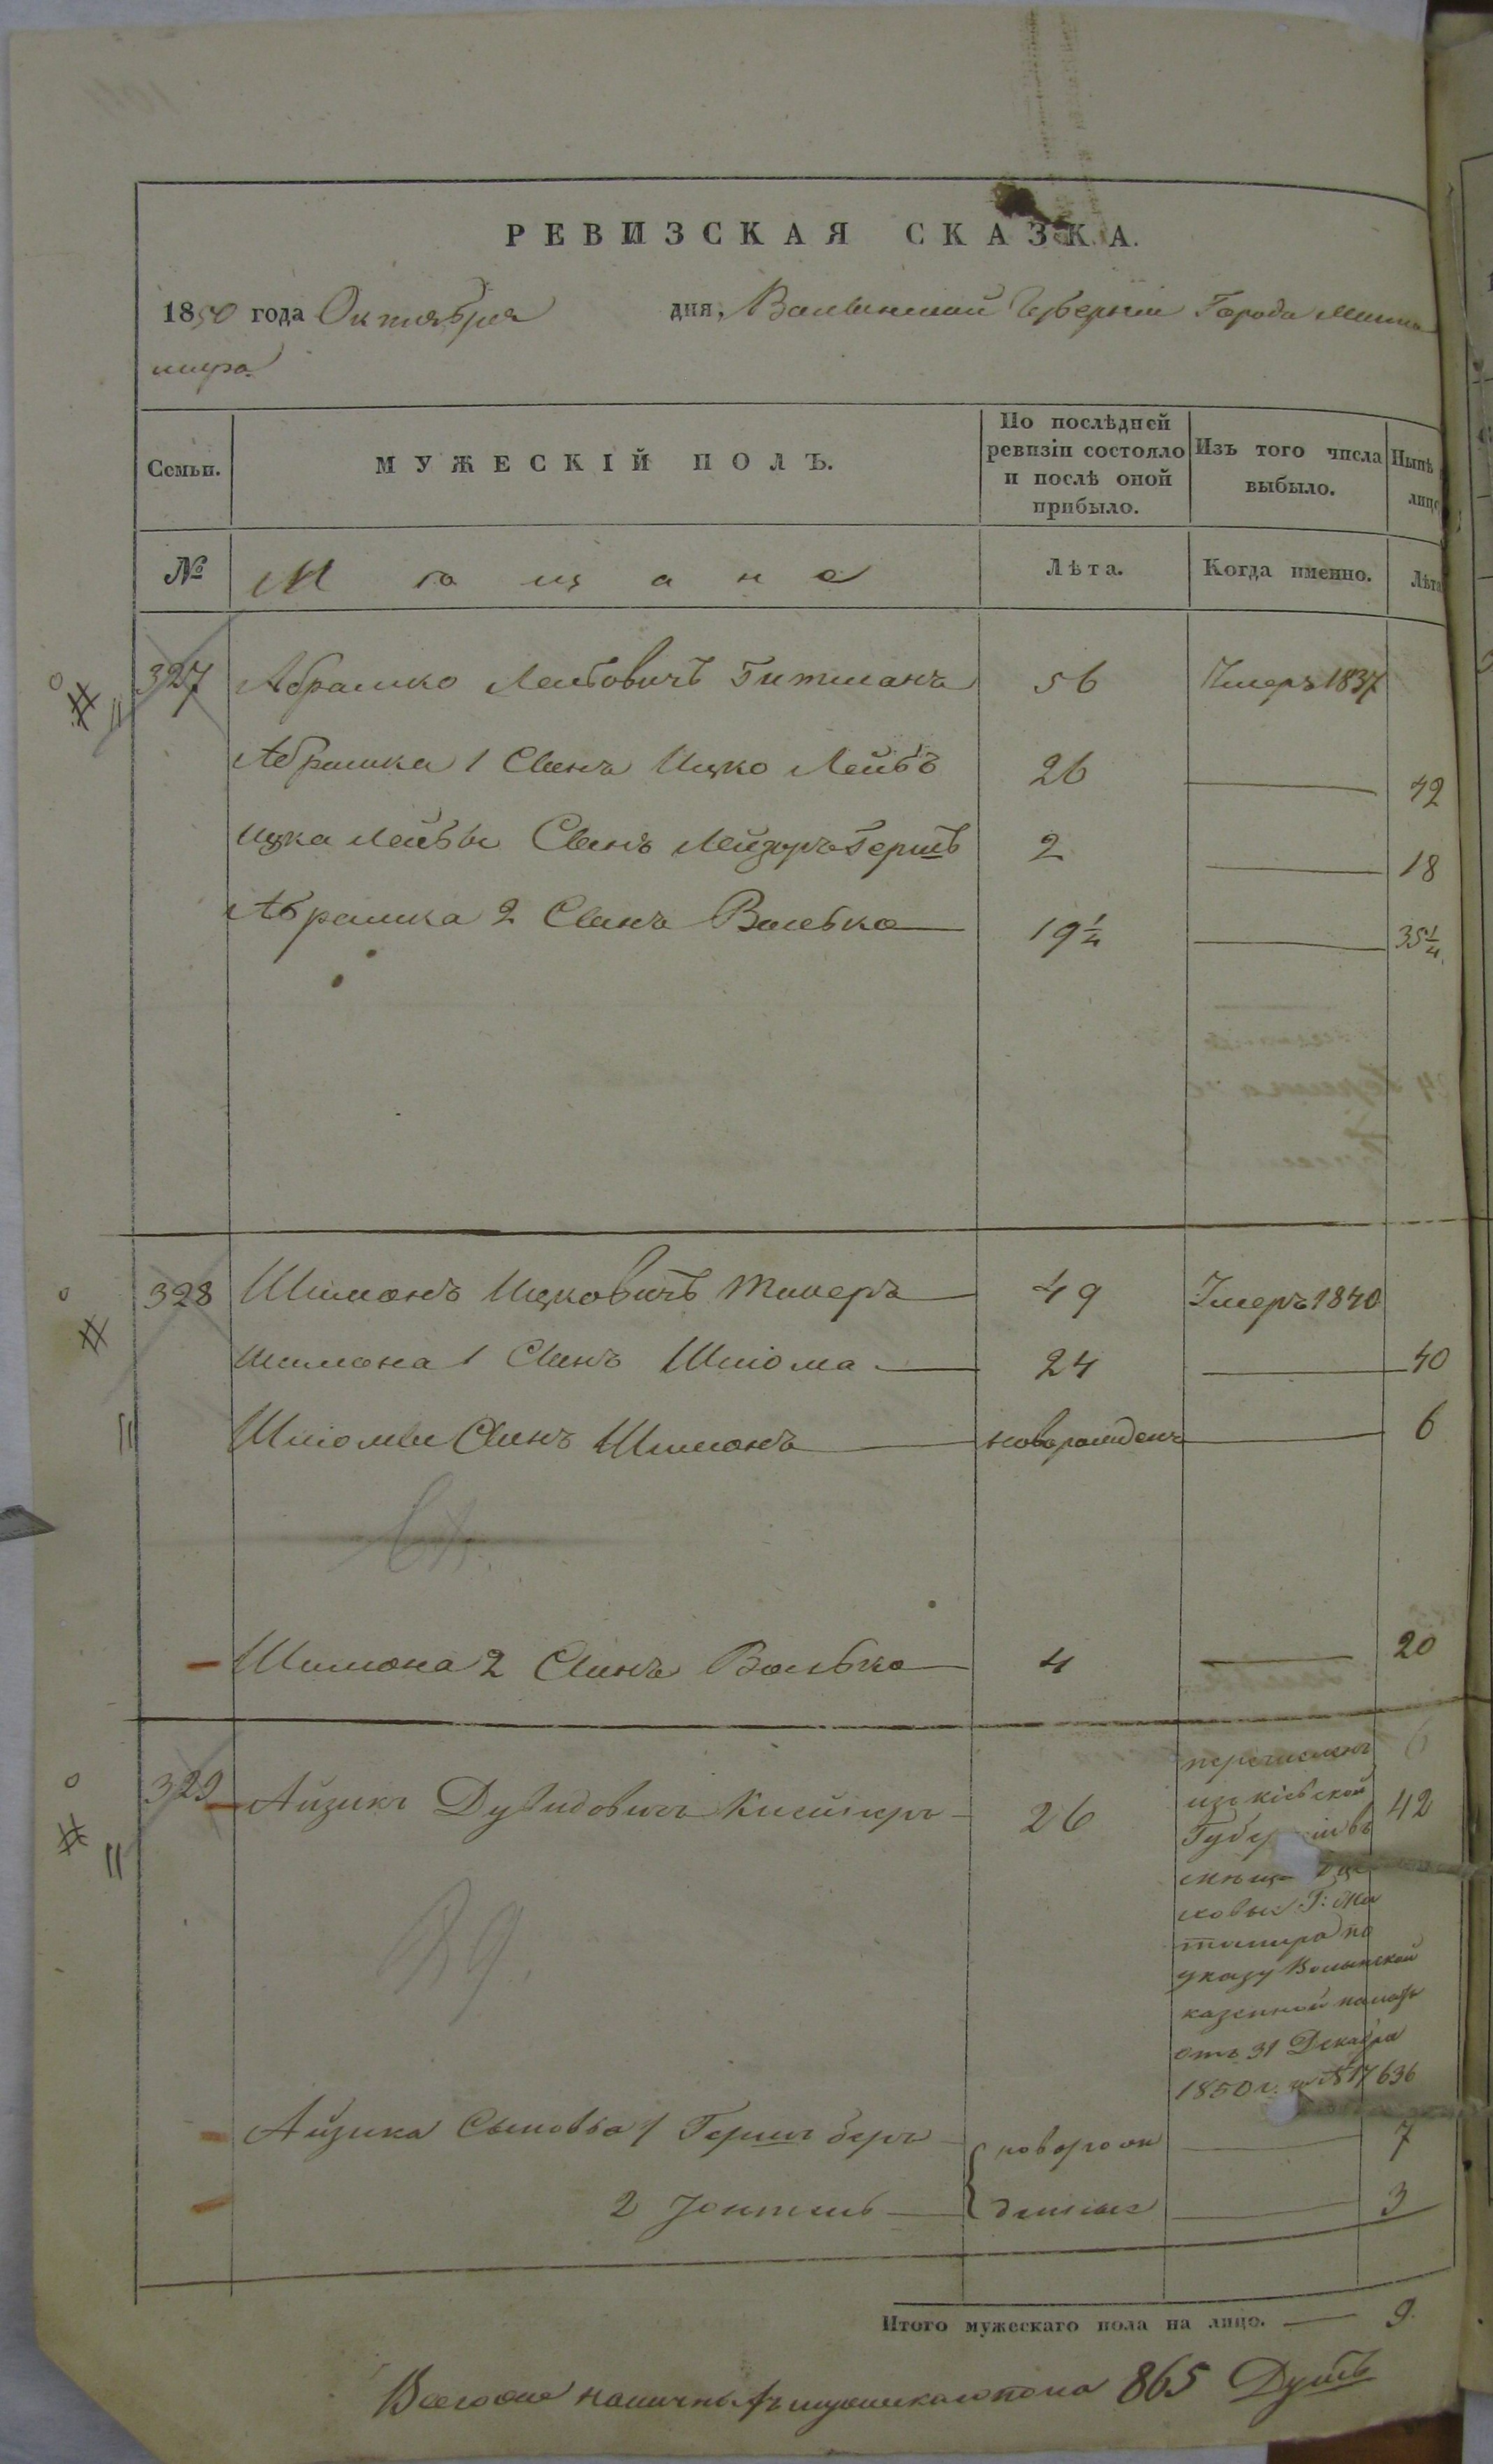 РЕВИЗСКАЯ СКАЗКА.
1850 года Октября дня, Волынской Губерніи Города Жито
мира
Семьи. МУЖЕСКІЙ ПОЛЪ. По послѣдней ревизіи состояло и послѣ оной прибыло. Изъ того числа выбыло. Нынѣ лицо
№ Мѣщане Лѣта. Когда именно. Лѣта
327 Абрамко Лейбовичъ Гитманъ 56 Умеръ 1837
Абрамка 1 Сынъ Ицко Лейбъ 26 42
Ицка Лейбы Сынъ Лейзоръ Гершъ 2 18
Абрамка 2 Сынъ Волько 19 1/4 35 1/4
328 Шимонъ Ицковичъ 49 Умеръ 1840
Шимона 1 Сынъ Шліома 24 40
Шліомы Сынъ Шимонъ новорожденъ 6
Шимона 2 Сынъ Волько 4 20
329 Айзикъ Дувидовичъ 26 42
перечисленъ
изъ кіевской
Губер ніи въ
ковые Г: Жи
томира по
указу Волынской
казенной палаты
отъ 31 Декабря
1850 г. за № 17636
Айзика Сыновья 1 Гершъ беръ новорож 7
2 Іонтель денные 3
Итого мужескаго пола на лицо. 9
Всего наличныхъ мужескаго пола 865 Душъ